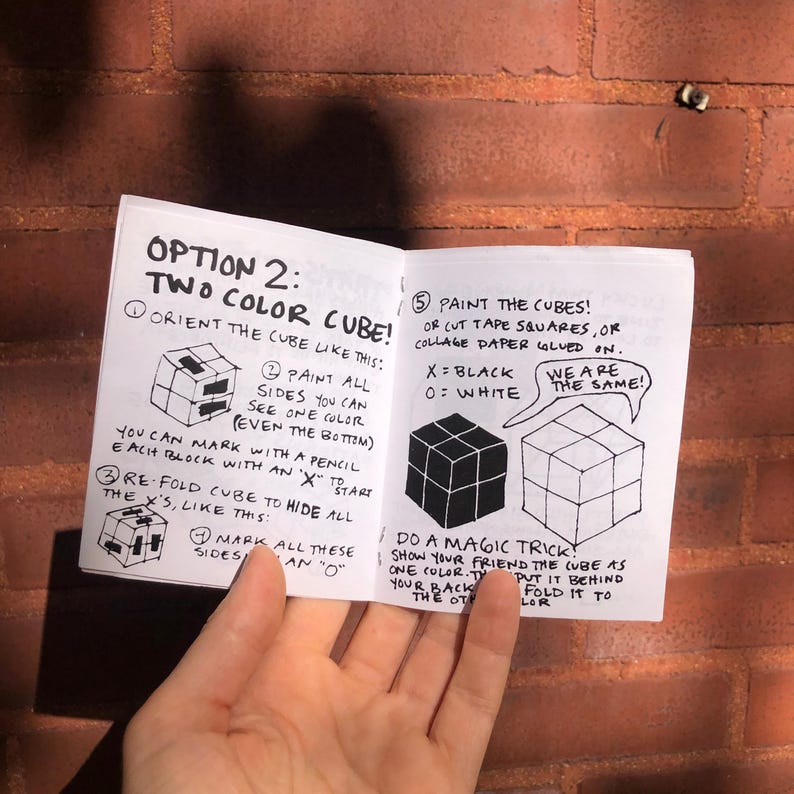 OPTION 2:
TWO COLOR CUBE!
① ORIENT THE CUBE LIKE THIS:
② PAINT ALL
SIDES YOU CAN
SEE ONE COLOR
(EVEN THE BOTTOM)
YOU CAN MARK WITH A PENCIL
EACH BLOCK WITH AN "X" TO
START
③ RE-FOLD CUBE TO HIDE ALL
THE X'S, LIKE THIS:
④ MARK ALL THESE
SIDES AN "O"
⑤ PAINT THE CUBES!
OR CUT TAPE SQUARES, OR
COLLAGE PAPER GLUED ON.
X = BLACK
O = WHITE
WE ARE
THE SAME!
DO A MAGIC TRICK!
SHOW YOUR FRIEND THE CUBE AS
ONE COLOR. PUT IT BEHIND
YOUR BACK FOLD IT TO
THE